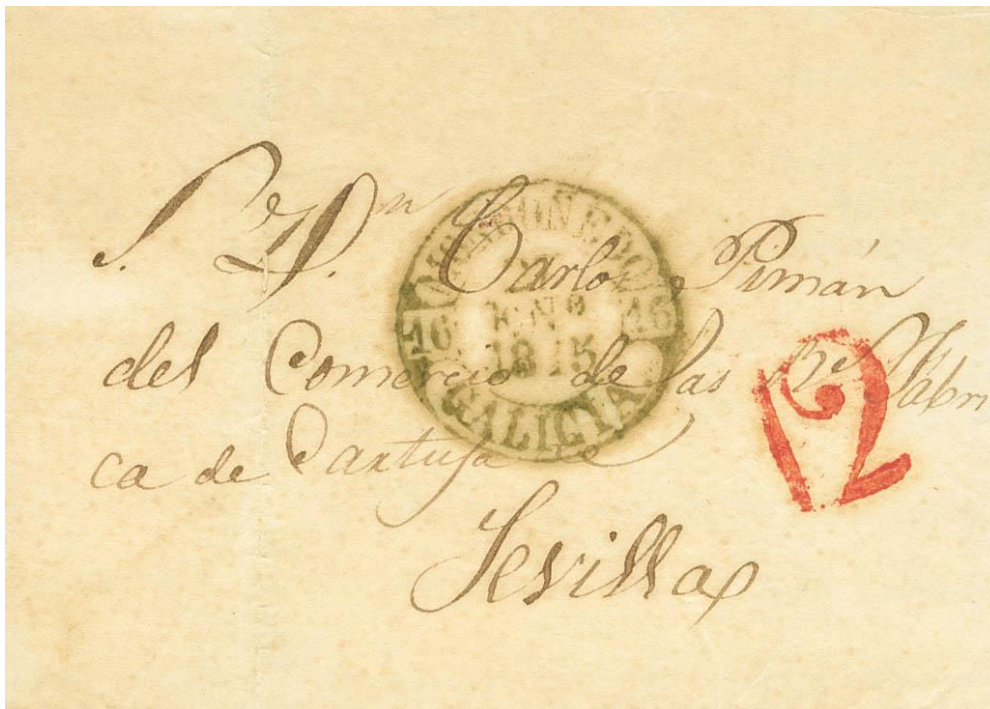 S.r D.n Carlos Pimán
del Comercio de las Rs Fabri
ca de Cartuja
Sevilla
16 16
1845
GALICIA
12